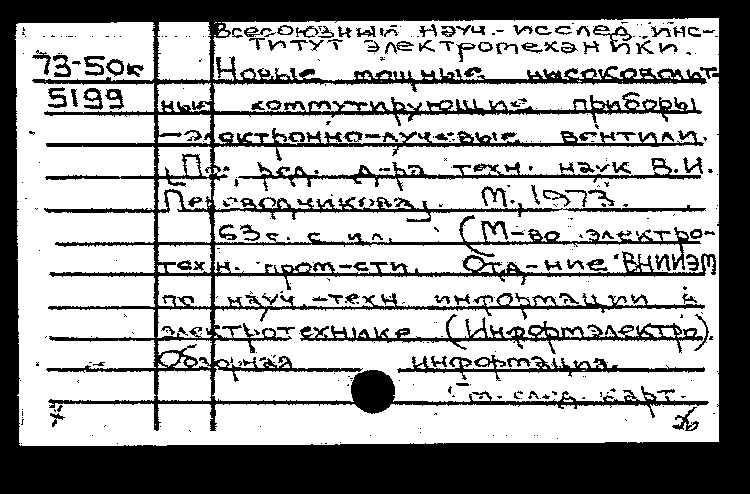 Всесоюзный науч.-исслед. инс-
титут электромеханики.
73-50к Новые мощные высоковольт-
5199 ные коммутирующие приборы
-электронно-лучевые вентили.
[Под ред. д-ра техн. наук В.И.
Переводчикова]. М., 1973.
63 с. с ил. (М-во электро-
техн. пром-сти. Отд-ние ВНИИЭМ
по науч.-техн. информации в
электротехнике (Информэлектро).
Обзорная информация.
См. след. карт.